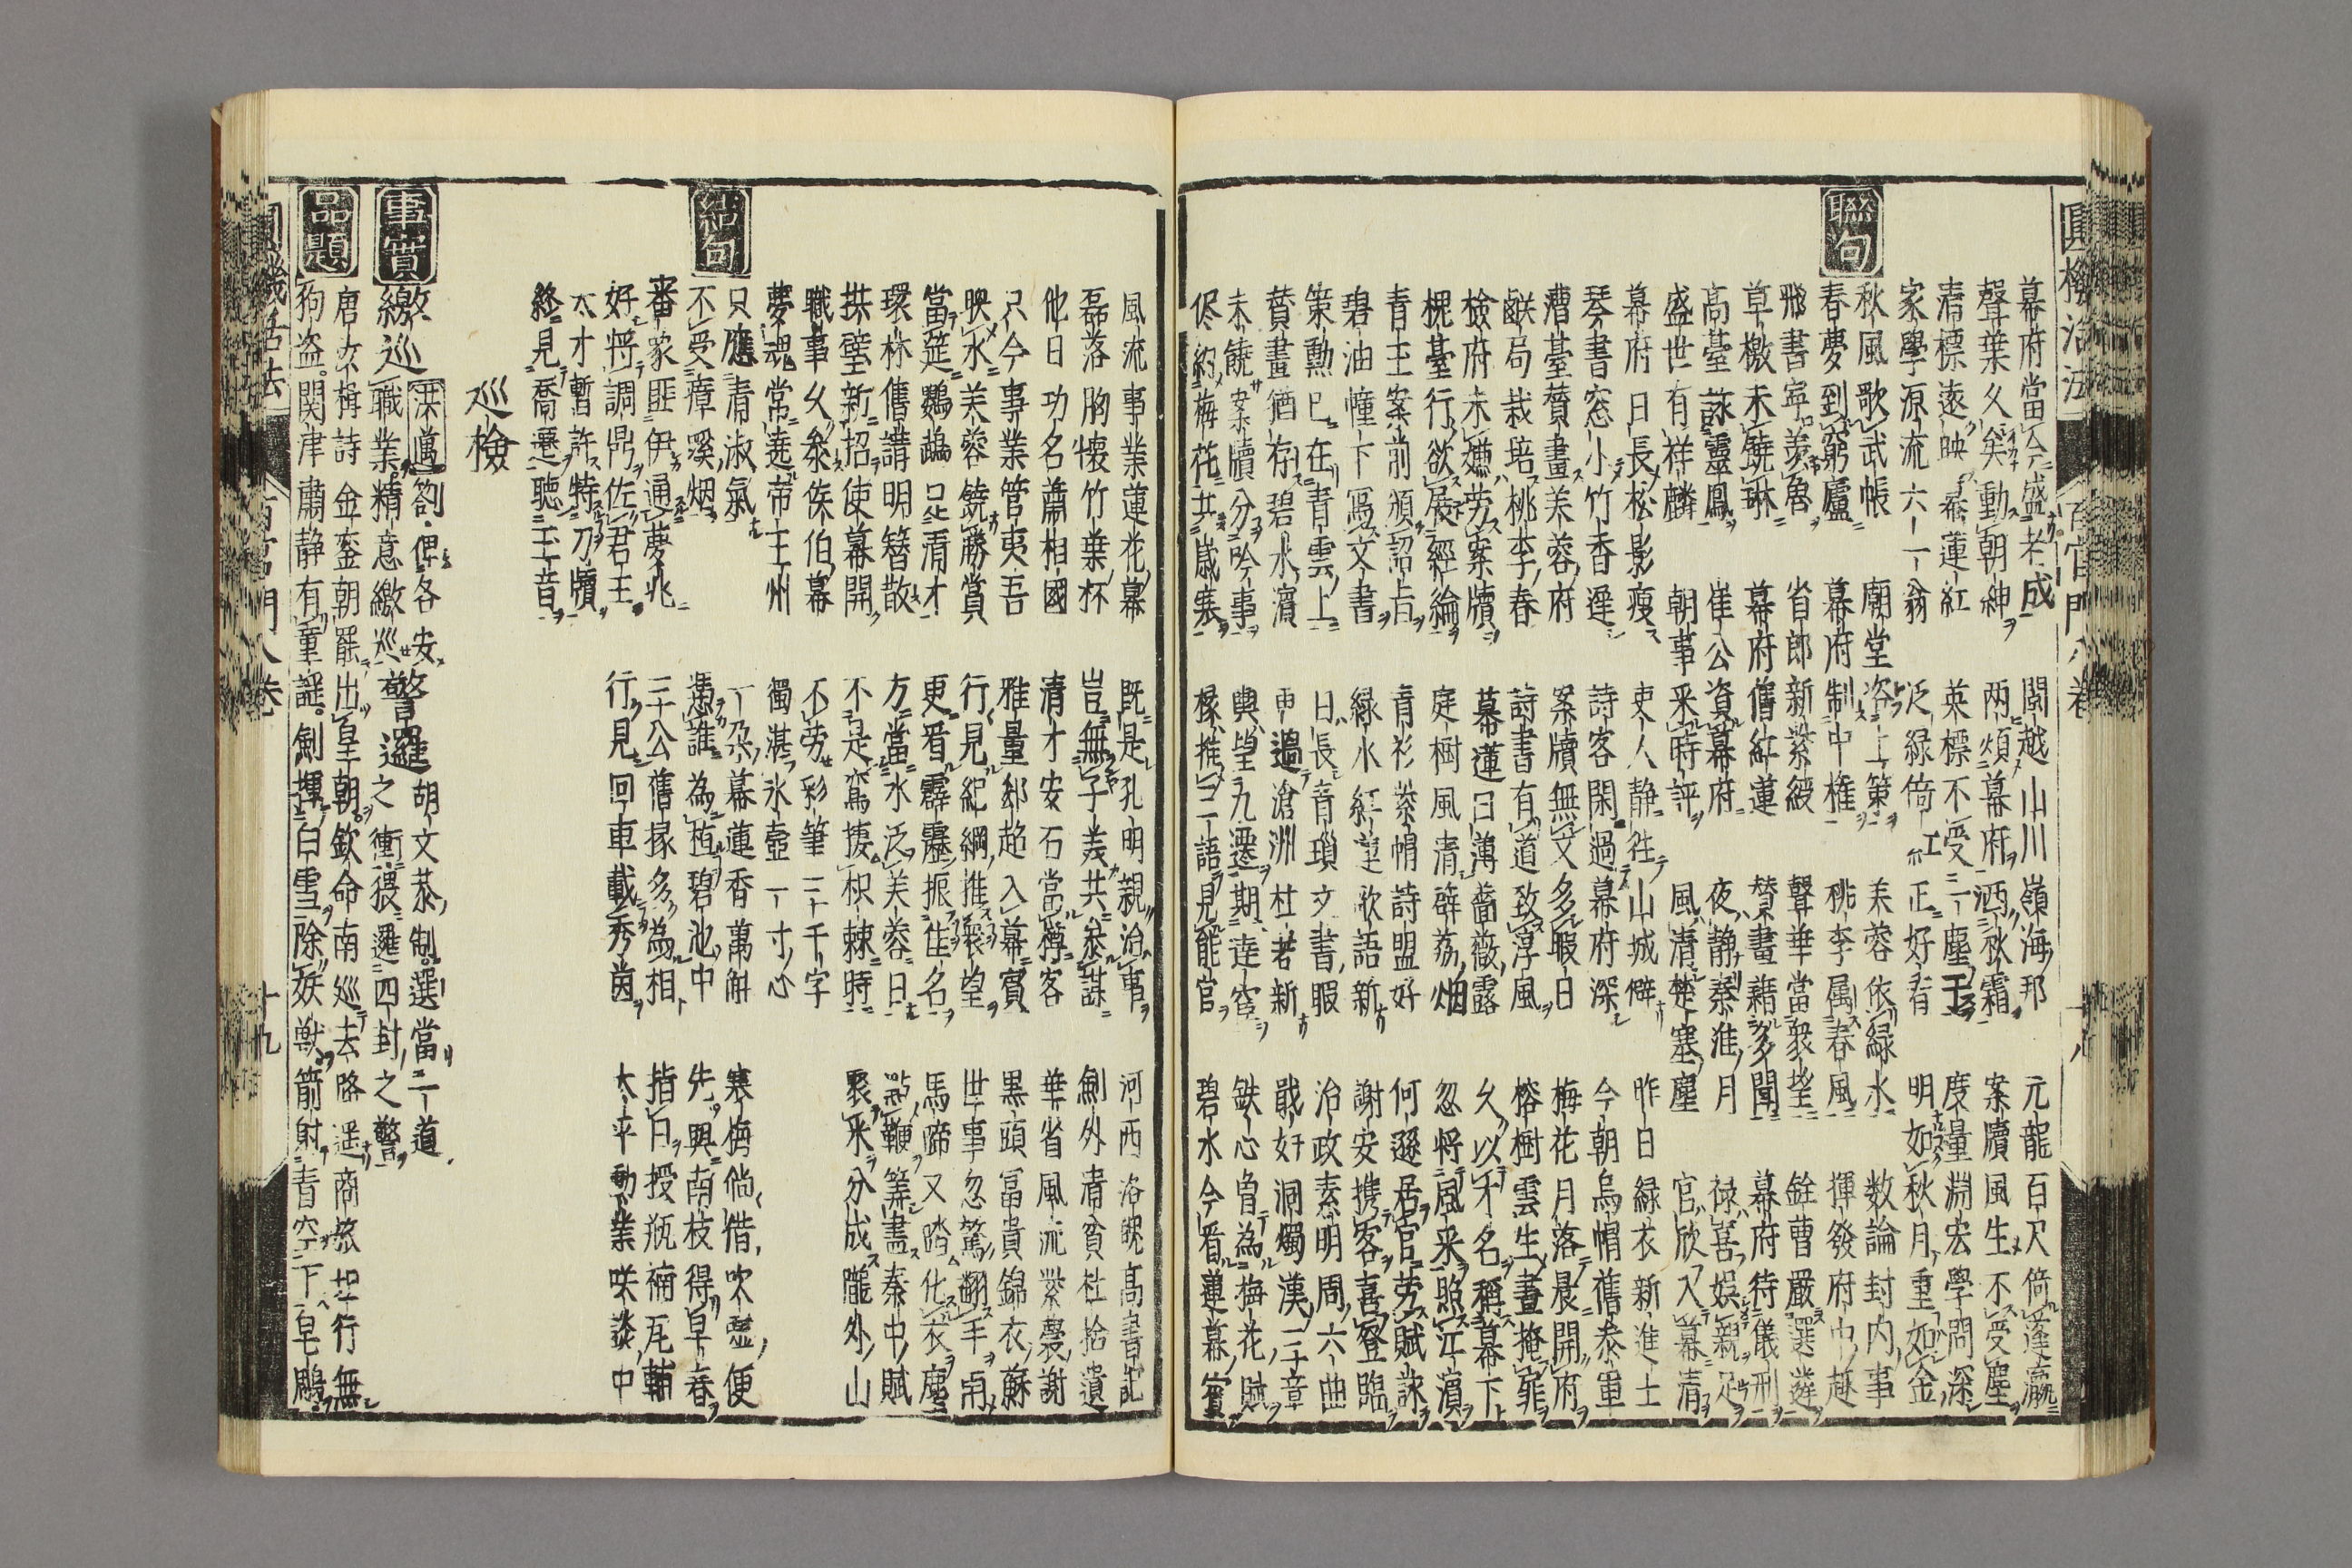 圓機活法 百官門八卷 十八
幕府當今盛老成 閩越山川嶺海邦 元龍百尺倚蓬瀛
聲華久矣動朝紳 两煩幕府洒秋霜 案牘風生不受塵
清標遠映幕蓮紅 英標不受一塵 度量淵宏學問深
家學源流六一翁 泛緑倚 正好看 明如秋月重如金
聯句
秋風歌武帳 廟堂咨上策 芙蓉依緑水 数論封内事
春夢到窮廬 幕府制中権 桃李属春風 揮發府中趍
飛書寧羨魯 省郎新紫綬 聲華當衆望 銓曹嚴選遴
草檄未饒琳 幕府舊紅蓮 賛畫藉多聞 幕府待儀刑
高臺詠靈鳳 崔公資幕府 夜静秦淮月 禄喜娯親足
盛世有祥麟 朝事采時評 風清楚塞塵 官欣入幕清
幕府日長松影瘦 吏人静往山城僻 昨日緑衣新進士
琴書窓小竹香遲 詩客閑過幕府深 今朝烏帽舊叅軍
漕臺賛畫芙蓉府 案牘無文多暇日 梅花月落晨開府
鹾局栽培桃李春 詩書有道致淳風 榕樹雲生晝掩扉
檢府未嫌勞案牘 幕蓮日薄薔薇露 久以才名稱幕下
槐臺行欲展經綸 庭樹風清薜荔烟 忽将風采照江濱
青玉案前頒詔旨 青衫紫帽詩盟好 何遜居官勞賦詠
碧油幢下寫文書 緑水紅蓮歌語新 謝安携客喜登臨
策勳已在青雲上 日長青瑣文書暇 治政素明周六曲
賛畫猶存碧水濱 雨過滄洲杜若新 戢奸洞燭漢三章
未饒案牘分吟事 輿望九遷期逹宦 鉄心曽為梅花賦
侭約梅花共歳寒 椽推三語見能官 碧水今看蓮幕賓
風流事業蓮花幕 既是孔明親治事 河西洛魄高書記
磊落胸懐竹葉杯 豈無子羙共叅謀 劍外清貧杜拾遺
他日功名蕭相國 清才安石當樽客 華省風流紫嚢謝
只今事業管夷吾 雅量郄超入幕賓 黒頭冨貴錦衣蘇
映水芙蓉饒勝賞 行見紀綱推衆望 世事忽驚翻手雨
當筵鸚鵡足清才 更看霹靂振佳名 馬蹄又踏化衣塵
環林舊講明簪散 方當水泛芙蓉日 點鞭筭盡秦中賦
拱壁新招使幕開 不是鸞捿枳棘時 聚米分成隴外山
職事久叅侏伯幕 不勞彩筆三千字
夢魂常遶帝王州 獨湛氷壺一寸心
絶句
只應青淑氣 一朶幕蓮香萬斛 寒梅倘借吹噓便
不受瘴溪烟 憑誰為植碧池中 先與南枝得早春
審象匪伊通夢兆 三公舊掾多為相 指日授瓶禰瓦輔
好将調鼎佐君王 行見回車載秀茵 太平動業咲談中
大才暫許特刀牘
終見喬遷聴玉音
巡檢
事實
繳巡 洪邁劄俾各安職業精意繳巡 警邏 胡文恭制選當一道之衝猥邏四封之警
品題
唐尓楫詩 金銮朝罷出皇朝 欽命南巡去路遥 商旅坦行無狗盗 関津肅静有童謡 劍揮白雪除妖獣 箭射青空下皀鵰
圓機活法 百官門八卷 十九